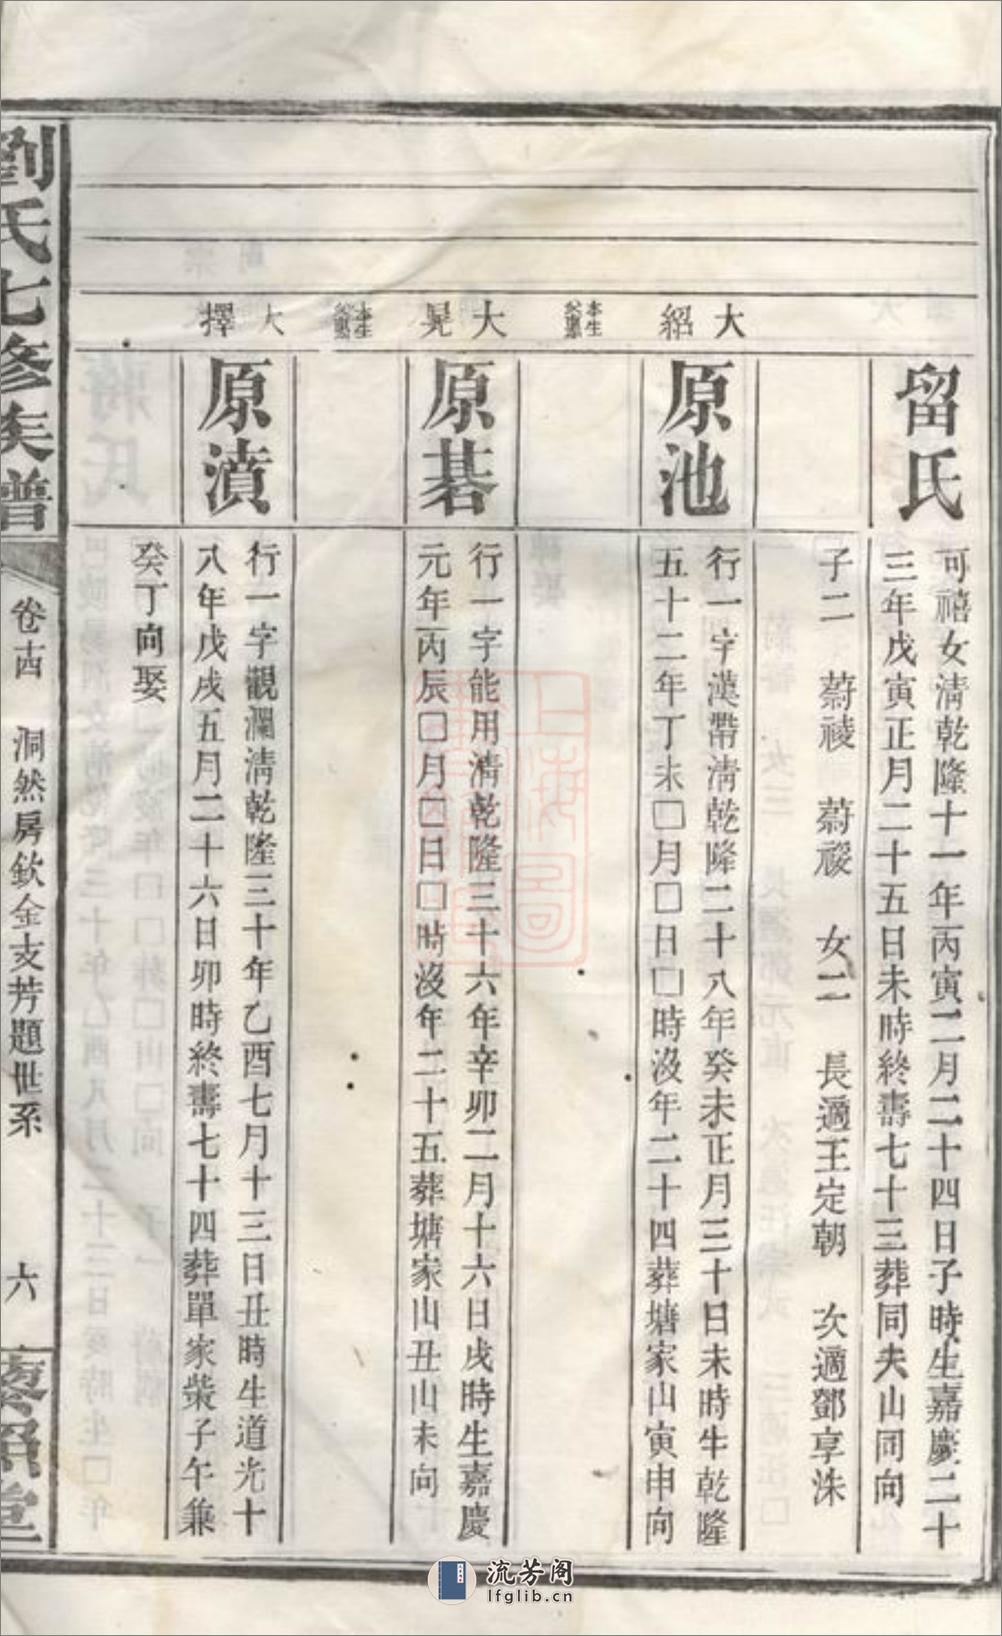 留氏
可禧女淸乾隆十一年丙寅二月二十四日子時生嘉慶二十
三年戊寅正月二十五日未時終壽七十三葬同夫山同向
子二 蔚祾 蔚禝 女二 長適王定朝 次適鄧享洙
大紹
原池
行一字漢帶淸乾隆二十八年癸未正月三十日未時生乾隆
五十二年丁未□月□日□時沒年二十四葬塘家山寅申向
本生
大晃
原碁
行一字能用淸乾隆三十六年辛卯二月十六日戌時生嘉慶
元年丙辰□月□日□時沒年二十五葬塘家山丑山未向
本生
大擇
原濆
行一字觀瀾淸乾隆三十年乙酉七月十三日丑時生道光十
八年戊戌五月二十六日卯時終壽七十四葬單家柴子午兼
癸丁向娶
劉氏七修族譜
卷十四 洞然房欽金支芳題世系 六
上海圖
流芳阁
lfglib.cn